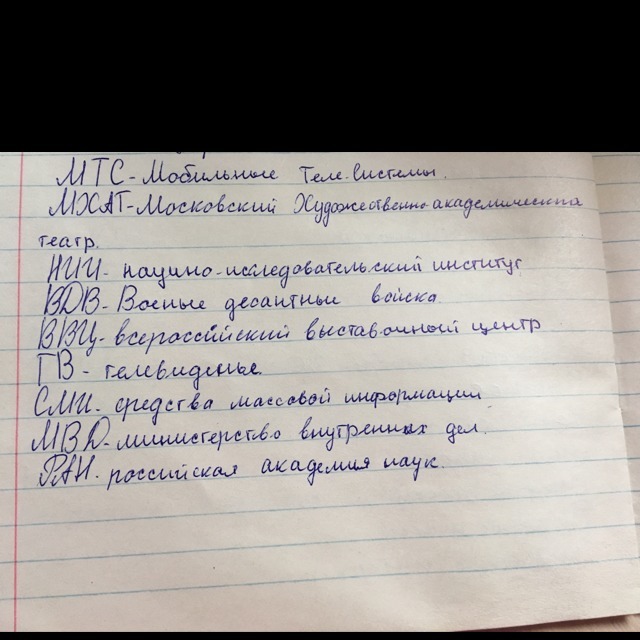 МТС-Мобильные Теле-Системы.
МХАТ-Московский Художественно-академический
театр.
НИИ-научно-исследовательский институт
ВДВ-Военые десантные войска
ВВЦ-всероссийский выставочный центр
ТВ-телевиденье
СМИ-средства массовой информации
МВД-министерство внутренних дел.
РАН-российская академия наук.